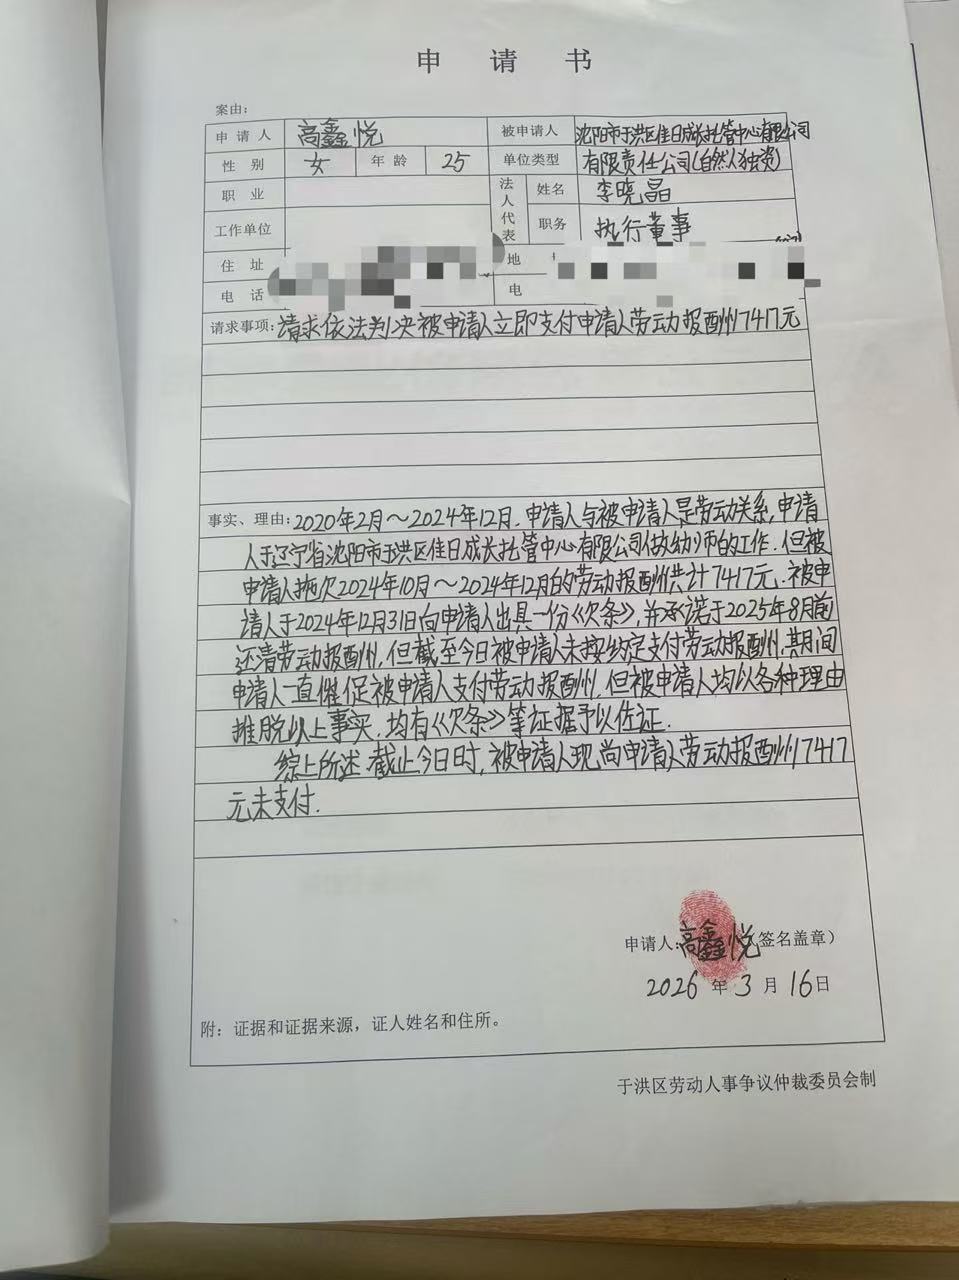 申 请 书
案由:
申请人 高鑫悦 被申请人 沈阳市于洪区佳日成长托管中心有限公司
性别 女 年龄 25 单位类型 有限责任公司(自然人独资)
职业 法人代表 姓名 李晓晶
工作单位 职务 执行董事
住址 地
电话 电
请求事项: 请求依法判决被申请人立即支付申请人劳动报酬7417元
事实、理由: 2020年2月～2024年12月.申请人与被申请人是劳动关系,申请
人于辽宁省沈阳市于洪区佳日成长托管中心有限公司做幼师的工作.但被
申请人拖欠2024年10月～2024年12月的劳动报酬共计7417元.被申
请人于2024年12月31日向申请人出具一份《欠条》,并承诺于2025年8月前
还清劳动报酬,但截至今日被申请人未按约定支付劳动报酬.其期间
申请人一直催促被申请人支付劳动报酬,但被申请人均以各种理由
推脱以上事实.均有《欠条》等证据予以佐证.
综上所述.截止今日时,被申请人现尚申请人劳动报酬7417
元未支付.
申请人:高鑫悦(签名盖章)
2026年3月16日
附：证据和证据来源，证人姓名和住所。
于洪区劳动人事争议仲裁委员会制